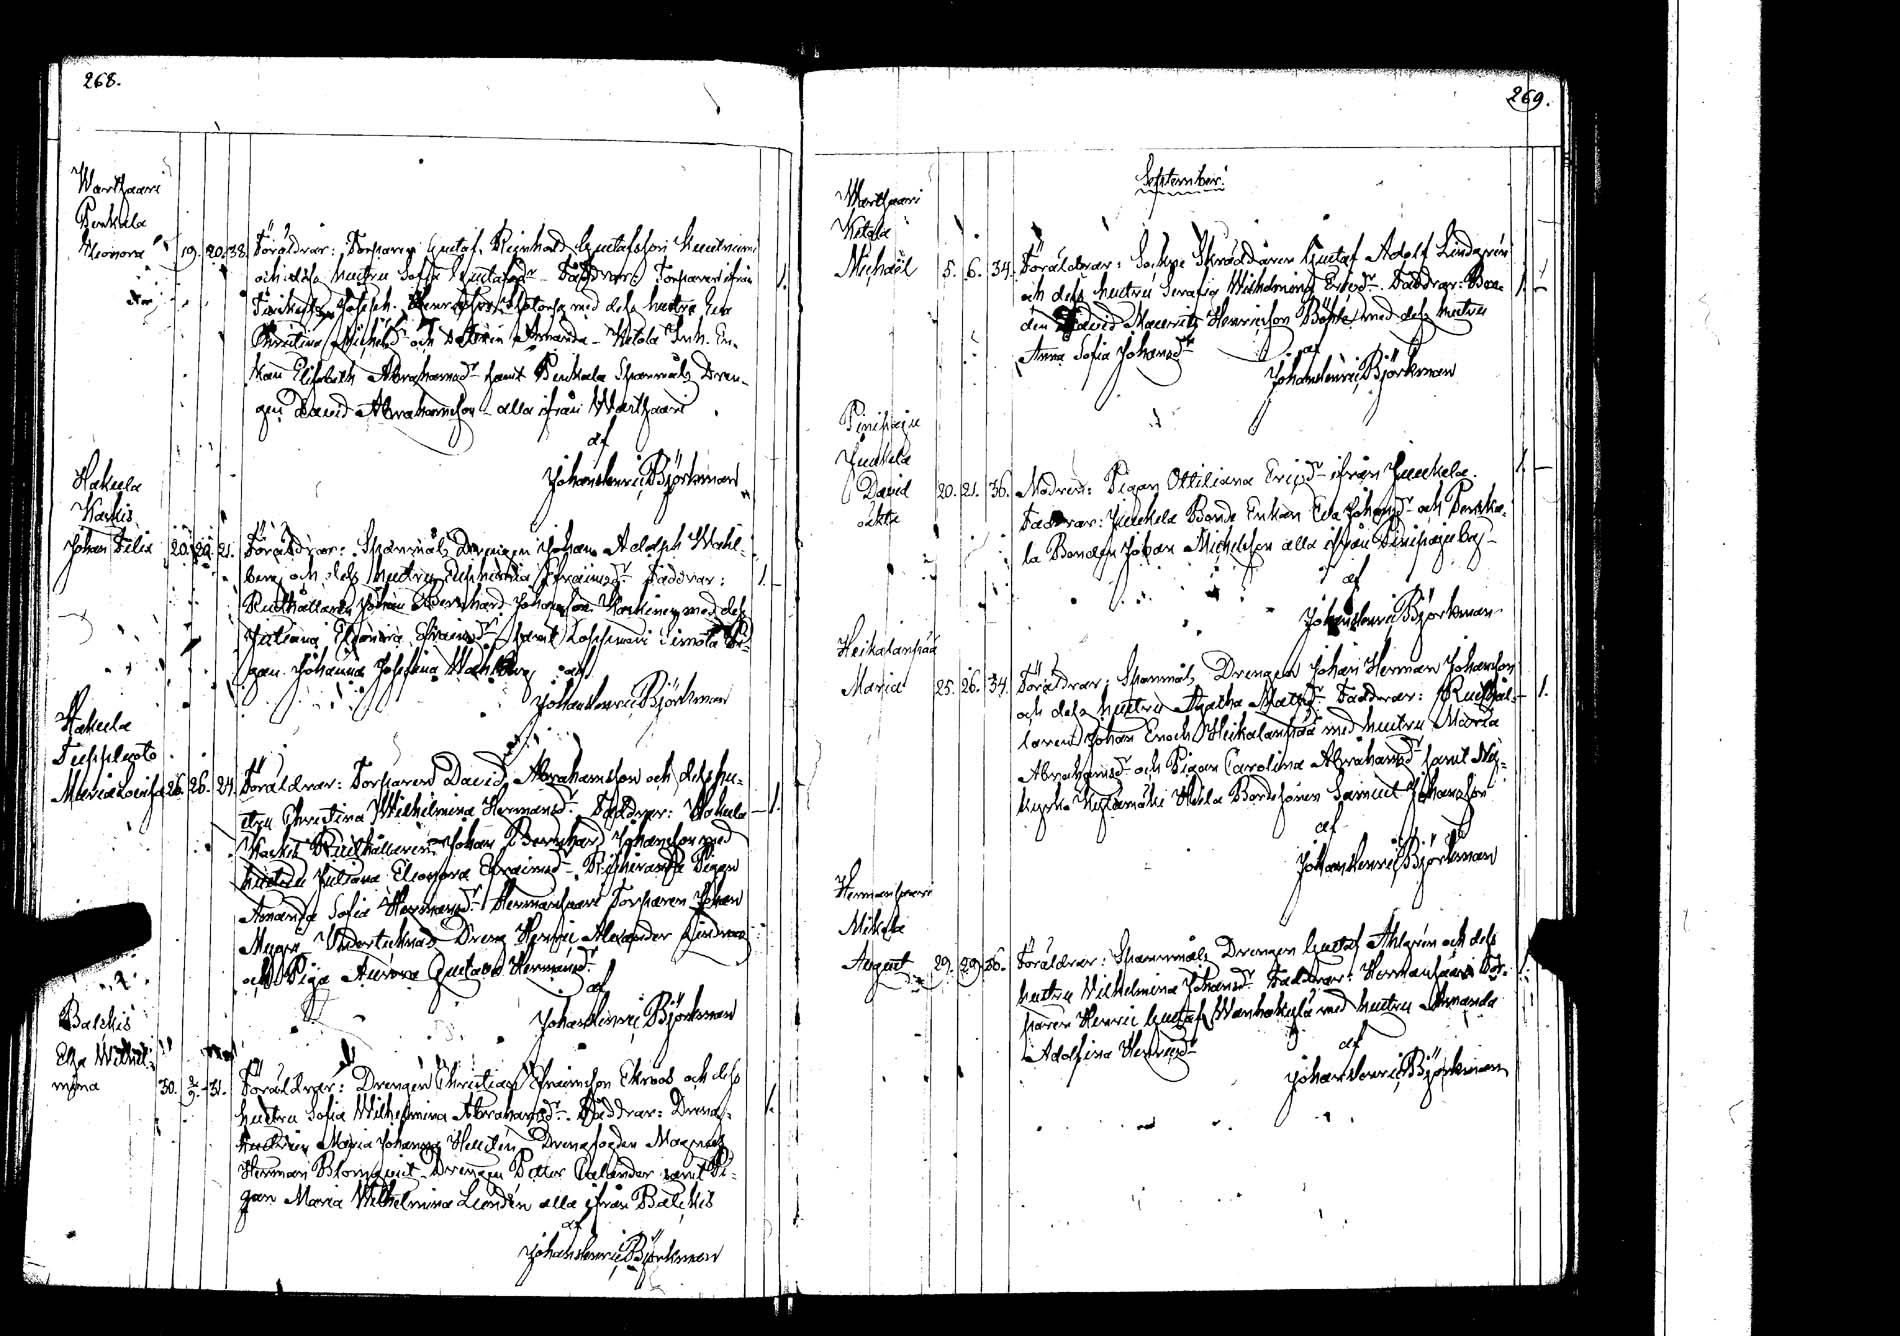 268.
Wartsaari
Penkala
Eleonora 19. 20. 38. Föräldrar: Torparen Gustaf Reinhold Gustafsson
och dess hustru Sofia Gustafsdr Faddrar: Torparen ifrån
Joseph Henricsson med dess hustru Eva
Christina Michelsdr och Amanda - Ketola Inh. En-
kan Elisabeth Abrahamsdr samt Penkala Spanmåls Dren-
gen David Abrahamsson - alla ifrån Wartsaari
af
Johan Henric Björkman
Hakula
Kaskis
Johan Felix 20. 20. 21. Föräldrar: Spanmåls Drengen Johan Adolph Wahl-
berg och dess hustru Euphrosia Efraimsdr Faddrar:
Rusthållaren Johan Bernhard Johansson med dess
Juliana Eleonora Efraimsdr samt Simola Pi-
gan Johanna Josefina Wahlberg af
Johan Henric Björkman
Hakula
Teppleoto
Maria Lovisa 26. 26. 24. Föräldrar: Torparen David Abrahamsson och dess hu-
stru Christina Wilhelmina Hermansdr Faddrar: Hakula
Kaskis Rusthållaren Johan Bernhard Johansson med
hustru Juliana Eleonora Efraimsdr - Pigan
Amanda Sofia Hermansdr Hermansaari Torparen Johan
Dreng Henric Alexander
och Piga Aurora Gustava Hermansdr
af
Johan Henric Björkman
Balckis
Elsa Wilhel-
mina 30. 2/9. 31. Föräldrar: Drengen Christian Efraimsson Ekroos och dess
hustru Sofia Wilhelmina Abrahamsdr. Faddrar: Dreng-
hustrun Maria Johanna Drengfogden Magnus
Herman Blomqvist - Drengen Petter Calander samt Pi-
gan Maria Wilhelmina Lundén alla ifrån Balckis
af
Johan Henric Björkman
269.
September.
Wartsaari
Ketola
Michaël 5. 6. 34. Föräldrar: Sockne Skräddaren Gustaf Adolf Lindgrén
och dess hustru Serafia Wilhelmina Ericsdr. Faddrar: Bon-
den David Mauritz Henricsson med dess hustru
Anna Sofia Johansdr
af
Johan Henric Björkman
Pinipaju
Junkela
David 20. 21. 36. Modren: Pigan Ottiliana Ericsdr ifrån Junkela.
oäkta
Faddrar: Junkela Bonde Enkan Eva Johansdr och Penka-
la Bonden Johan Michelsson alla ifrån Pinipaju by
af
Johan Henric Björkman
Heikalanpää
Maria 25. 26. 34. Föräldrar: Spanmåls Drengen Johan Herman Johansson
och dess hustru Agatha Mattsdr. Faddrar: Rusthål-
laren Johan Enoch Heikalanpää med hustru Maria
Abrahamsdr och Pigan Carolina Abrahamsdr samt Ny-
kyrko Kylämäki Heila Bondesonen Samuel Johansson
af
Johan Henric Björkman
Hermansaari
Mikola
August 29. 29. 36. Föräldrar: Spanmåls Drengen Gustaf Ahlgrén och dess
hustru Wilhelmina Johansdr. Faddrar: Hermansaari Tor-
paren Henric Gustaf Wanhakylä med hustru Amanda
Adolfina Henricsdr
af
Johan Henric Björkman